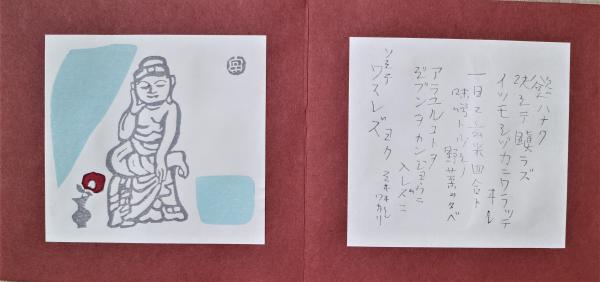 慾ハナク
決シテ瞋ラズ
イツモシヅカニワラッテ
ヰル
一日ニ玄米四合ト
味噌ト少シノ
野菜ヲタベ
アラユルコトヲ
ジブンヲカンジョウニ
入レズニ
ヨク
ミキキシ
ワカリ
ソシテ
ワスレズ